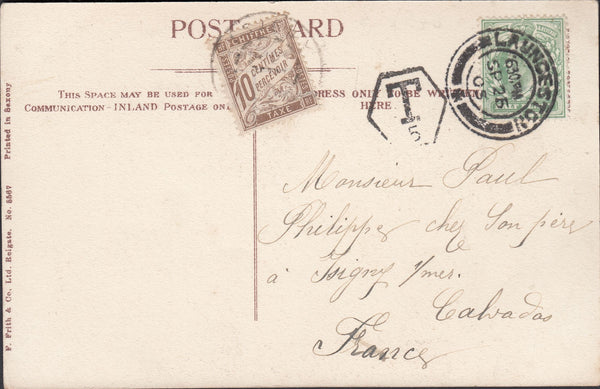 POST CARD
THIS SPACE MAY BE USED FOR
COMMUNICATION - INLAND POSTAGE ON
RESS ONLY TO BE WRITT
HERE.
CHIFFRE
10
CENTIMES
A PERCEVOIR
TAXE
T
5
LAUNCESTON
6 0 PM
SP 25
Monsieur Paul
Philippe chez Son père
à Isigny s/mer.
Calvados
France
F. Frith & Co. Ltd. Reigate. No. 5567
Printed in Saxony